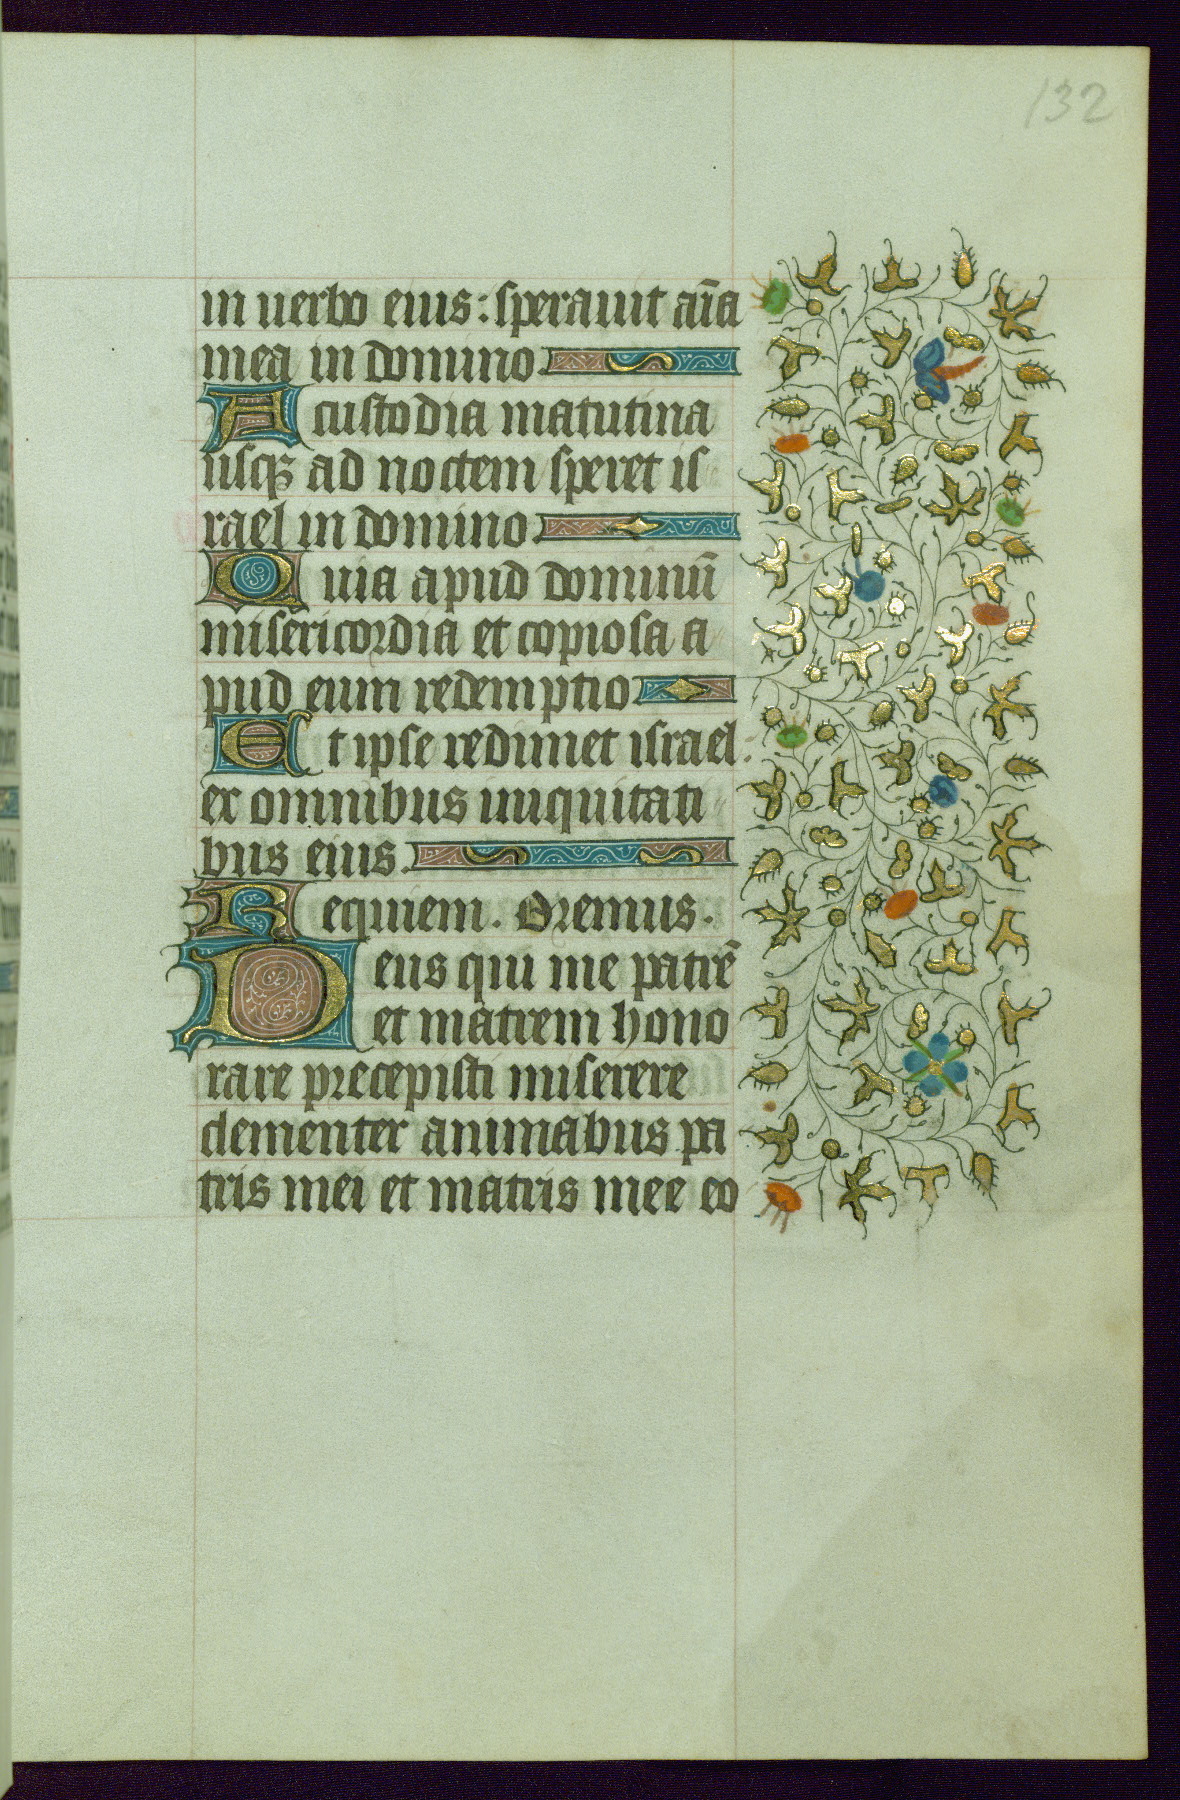 132
in uerbo eius: sperauit aīa
mea in domino
A custodia matutina
usqꝫ ad noctem speret is
rael in domino
Quia apud dominū
misericordia et copiosa a
pud eum redemptio
Et ipse redimet israel.
ex omnibus iniquitati
bus eius.
Requiem. Oremus.
Deus qui me patrē
et matrem hono
rare precepisti miserere
clementer animabus pa
tris mei et matris mee eo